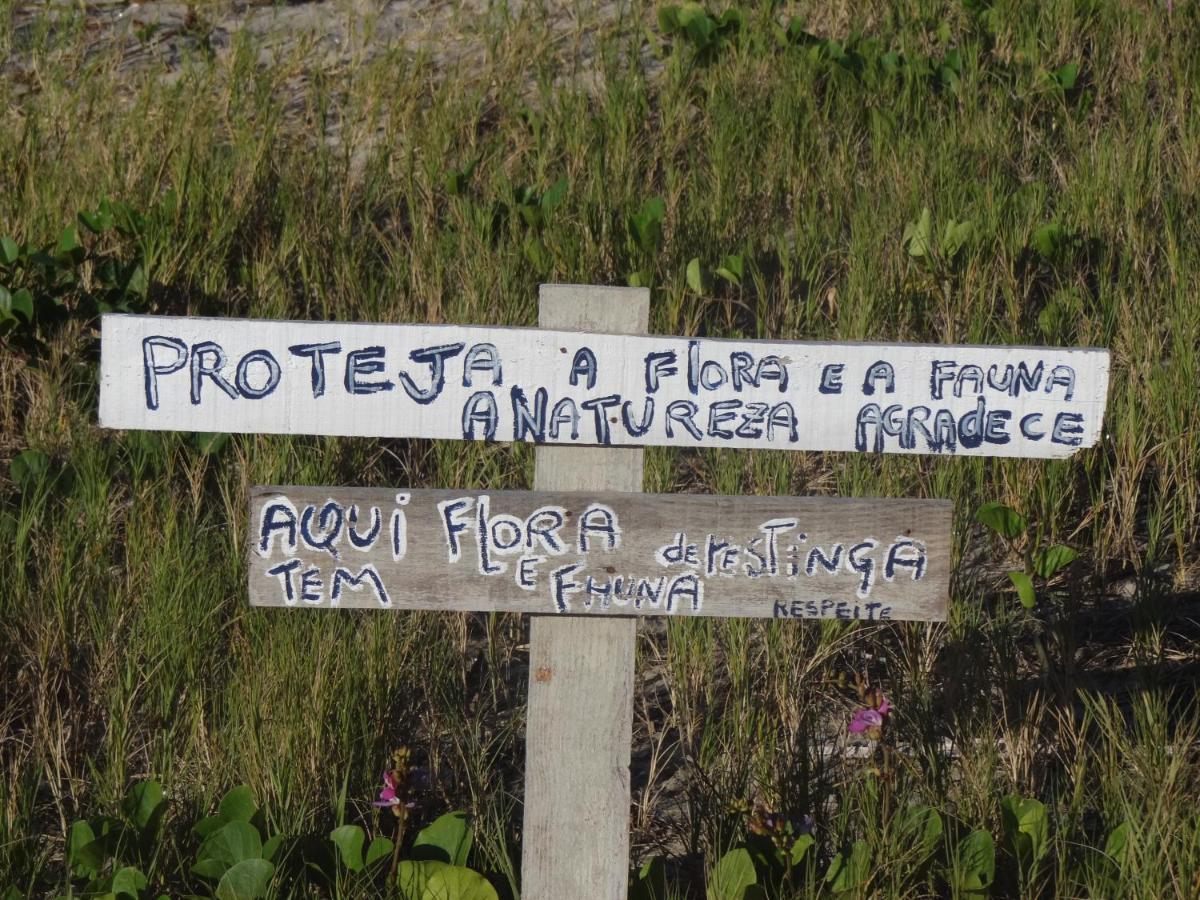 PROTEJA A FlORA E A FAUNA
A NATUREZA AGRADECE
AQUi FlORA de reSTiNGA
TEM E FAUNA
RESPEITE